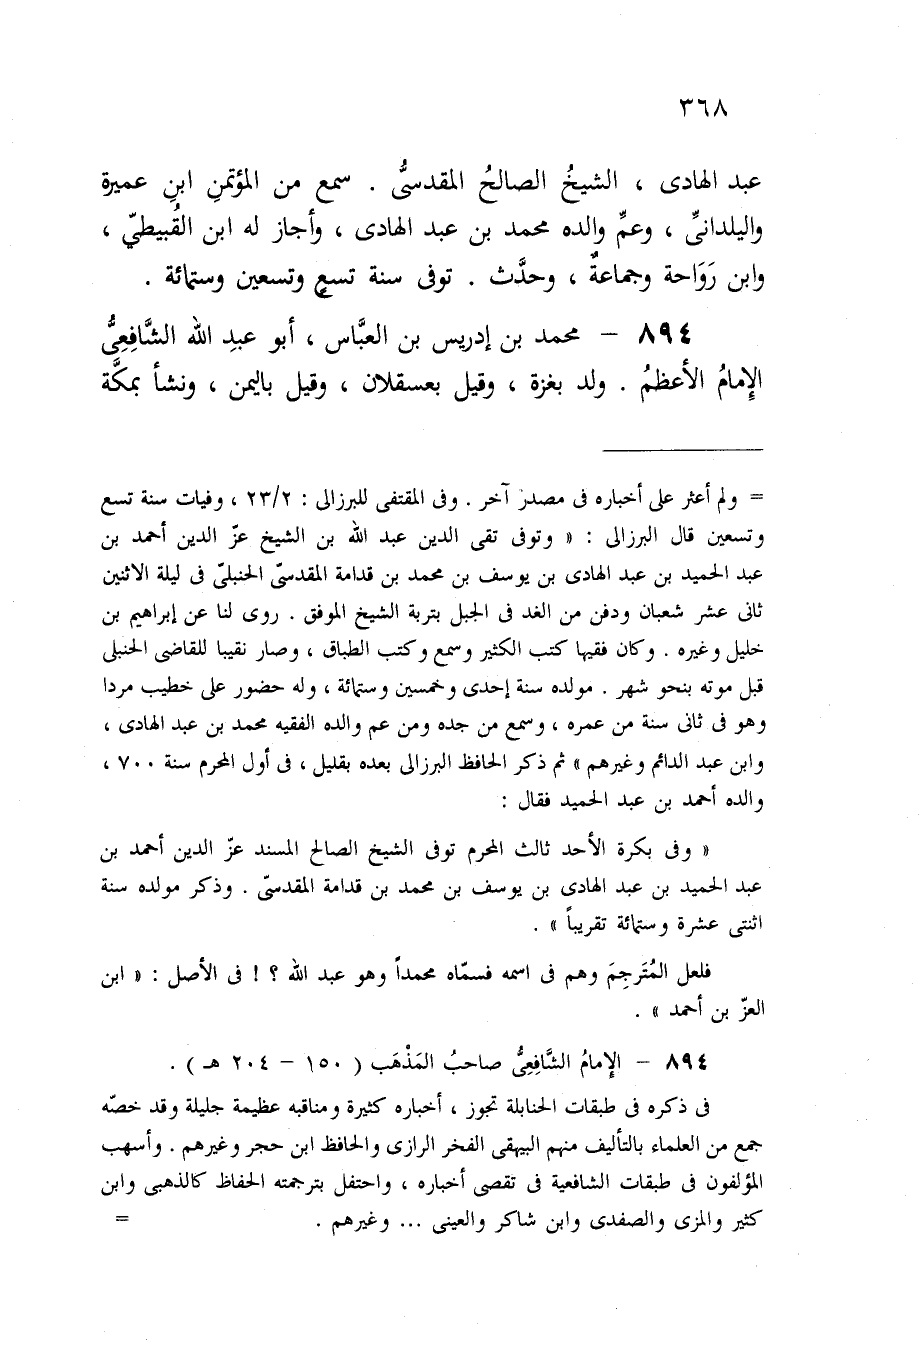 ٣٦٨
عبد الهادى ، الشيخُ الصالحُ المقدسىُّ . سمع من المؤتمنِ ابنِ عميرة
واليلدانىِّ ، وعمِّ والده محمد بن عبد الهادى ، وأجاز له ابن القُبيطىّ ،
وابن رَوَاحة وجماعةٌ ، وحدَّث . توفى سنة تسعٍ وتسعين وستمائة .
٨٩٤ – محمد بن إدريس بن العبَّاس ، أبو عبدِ الله الشَّافِعِىُّ
الإِمامُ الأعظمُ . ولد بغزة ، وقيل بعسقلان ، وقيل باليمن ، ونشأ بمكَّة
= ولم أعثر على أخباره فى مصدر آخر . وفى المقتفى للبرزالى : ٢٣/٢ ، وفيات سنة تسع
وتسعين قال البرزالى : « وتوفى تقى الدين عبد الله بن الشيخ عزّ الدين أحمد بن
عبد الحميد بن عبد الهادى بن يوسف بن محمد بن قدامة المقدسىّ الحنبلىّ فى ليلة الاثنين
ثانى عشر شعبان ودفن من الغد فى الجبل بتربة الشيخ الموفق . روى لنا عن إبراهيم بن
خليل وغيره . وكان فقيها كتب الكثير وسمع وكتب الطباق ، وصار نقيبا للقاضى الحنبلى
قبل موته بنحو شهر . مولده سنة إحدى وخمسين وستمائة ، وله حضور على خطيب مردا
وهو فى ثانى سنة من عمره ، وسمع من جده ومن عم والده الفقيه محمد بن عبد الهادى ،
وابن عبد الدائم وغيرهم » ثم ذكر الحافظ البرزالى بعده بقليل ، فى أول المحرم سنة ٧٠٠ ،
والده أحمد بن عبد الحميد فقال :
« وفى بكرة الأحد ثالث المحرم توفى الشيخ الصالح المسند عزّ الدين أحمد بن
عبد الحميد بن عبد الهادى بن يوسف بن محمد بن قدامة المقدسىّ . وذكر مولده سنة
اثنتى عشرة وستمائة تقريباً » .
فلعل المُتَرجِمَ وهم فى اسمه فسمّاه محمداً وهو عبد الله ؟ ! فى الأصل : « ابن
العزّ بن أحمد » .
٨٩٤ – الإمامُ الشَّافِعِىُّ صاحبُ المَذْهَب ( ١٥٠ – ٢٠٤ هـ ) .
فى ذكره فى طبقات الحنابلة تجوز ، أخباره كثيرة ومناقبه عظيمة جليلة وقد خصّه
جمع من العلماء بالتأليف منهم البيهقى الفخر الرازى والحافظ ابن حجر وغيرهم . وأسهب
المؤلفون فى طبقات الشافعية فى تقصى أخباره ، واحتفل بترجمته الحفاظ كالذهبى وابن
كثير والمزى والصفدى وابن شاكر والعينى ... وغيرهم . =